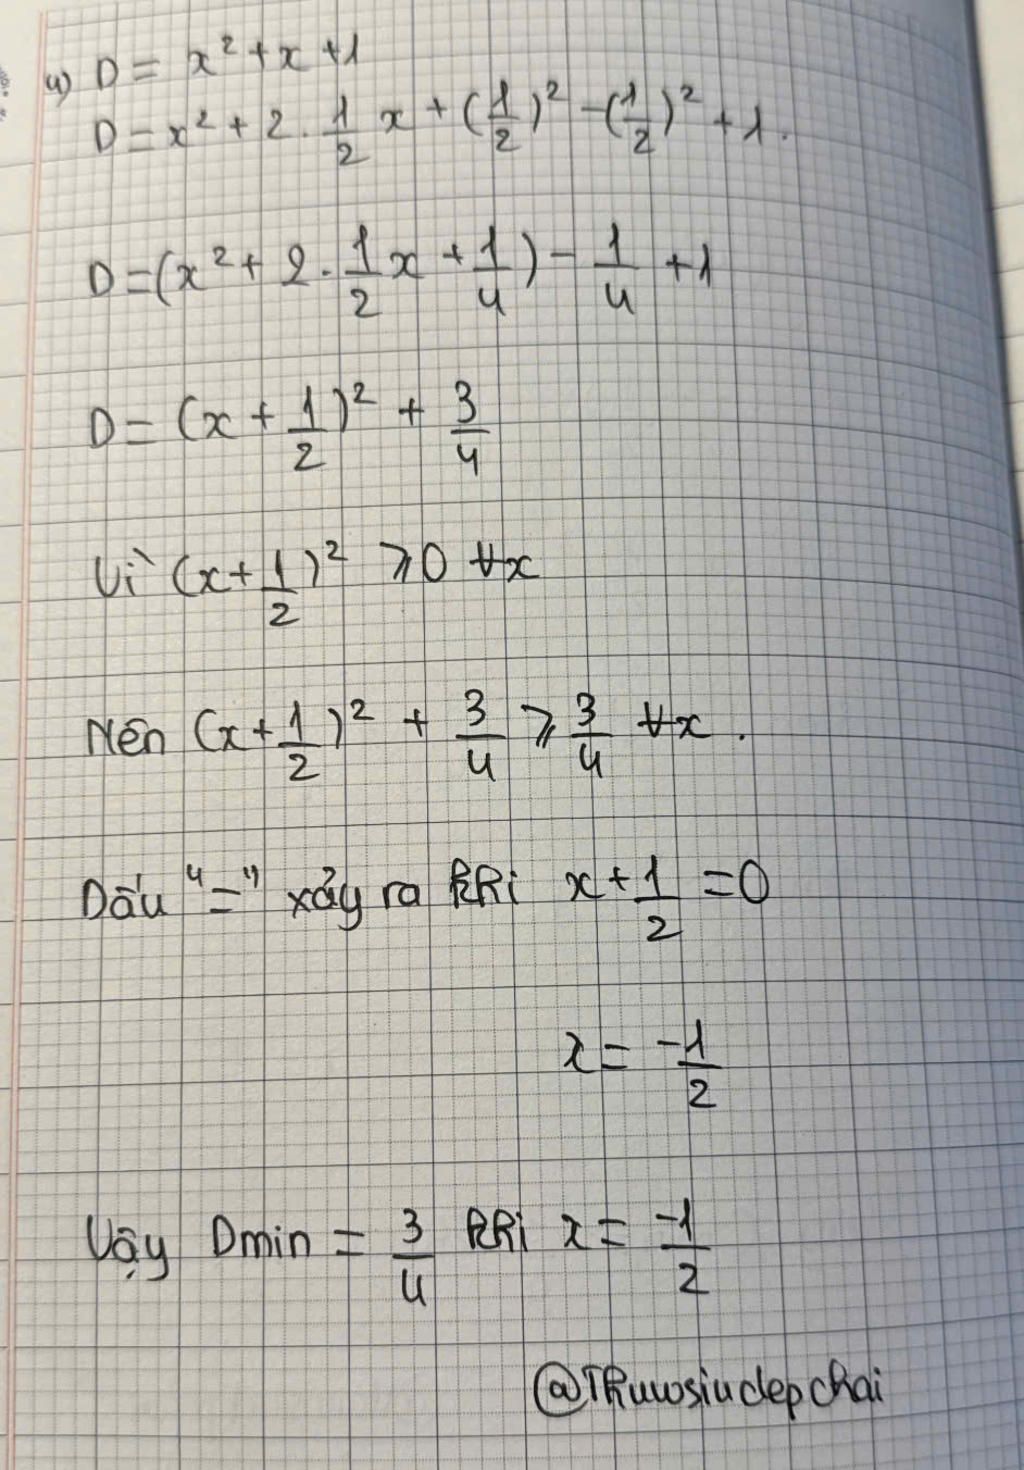 4) D = x² + x + 1
D = x² + 2 . 1/2 x + (1/2)² - (1/2)² + 1.
D = (x² + 2 . 1/2 x + 1/4) - 1/4 + 1
D = (x + 1/2)² + 3/4
Vì (x + 1/2)² ⩾ 0 ∀x
Nên (x + 1/2)² + 3/4 ⩾ 3/4 ∀x .
Dấu "=" xảy ra khi x + 1/2 = 0
x = -1/2
Vậy Dmin = 3/4 khi x = -1/2
@Thuwsiudepchai